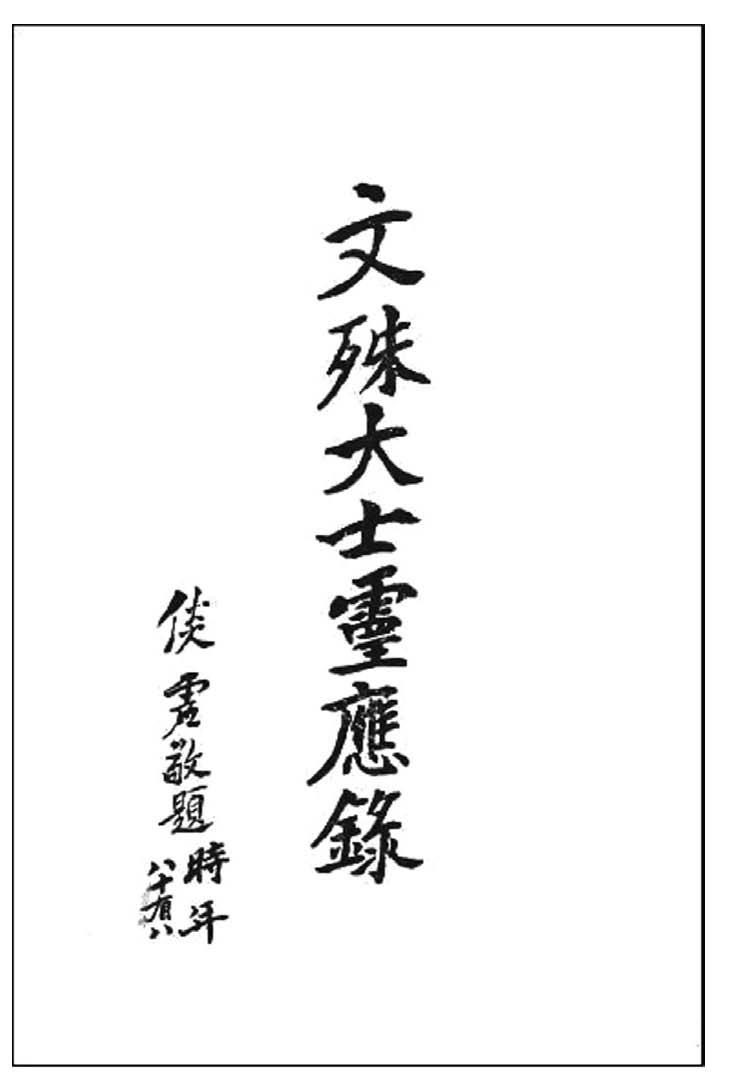 文殊大士靈應錄
倓虛敬題
時年
八十有八